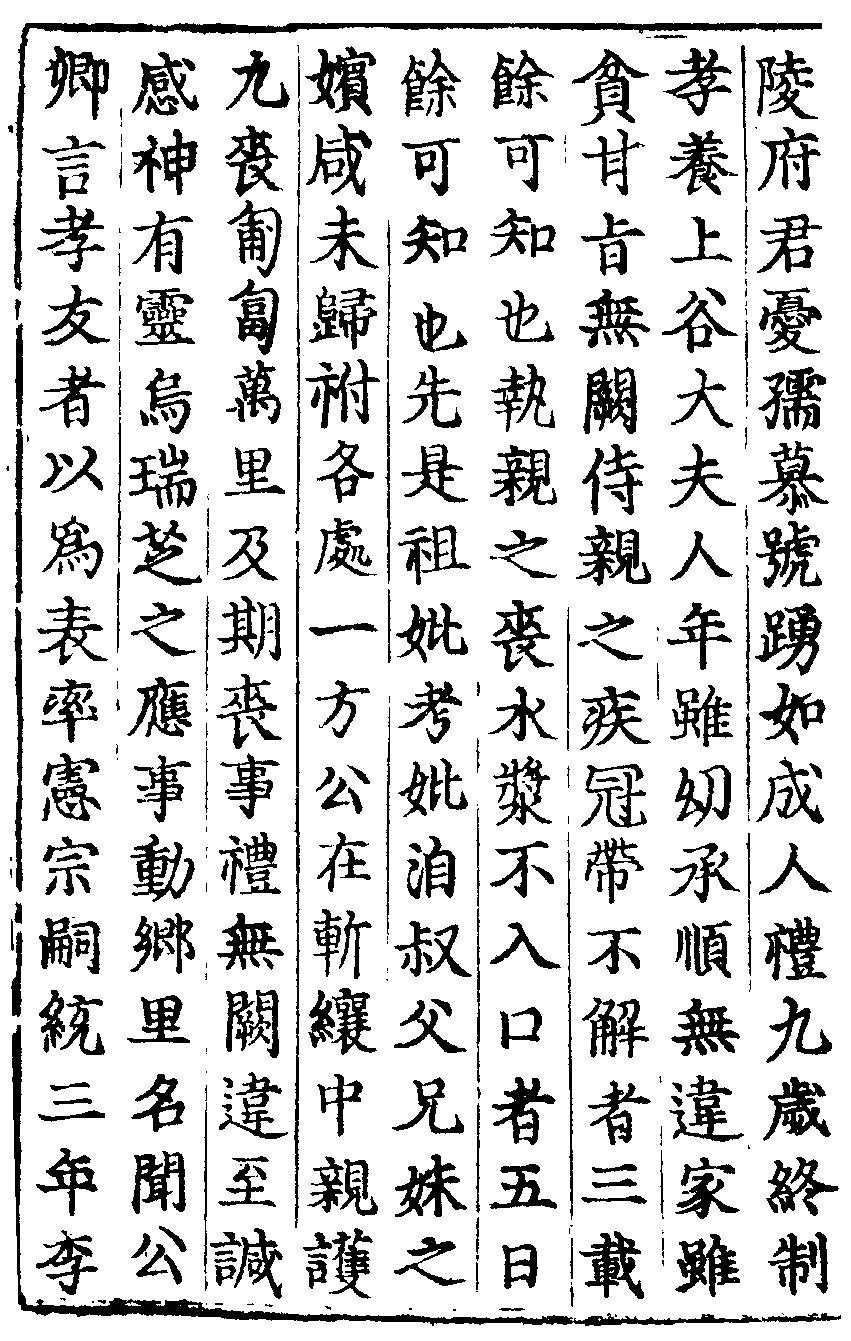 陵府君憂孺慕號踴如成人禮九歲終制
孝養上谷大夫人年雖幼承順無違家雖
貧甘旨無闕侍親之疾冠帶不解者三載
餘可知也執親之喪水漿不入口者五日
餘可知也先是祖妣考妣洎叔父兄姊之
嬪咸未歸祔各處一方公在斬縗中親護
九喪匍匐萬里及期喪事禮無闕違至諴
感神有靈烏瑞芝之應事動鄉里名聞公
卿言孝友者以爲表率憲宗嗣統三年李